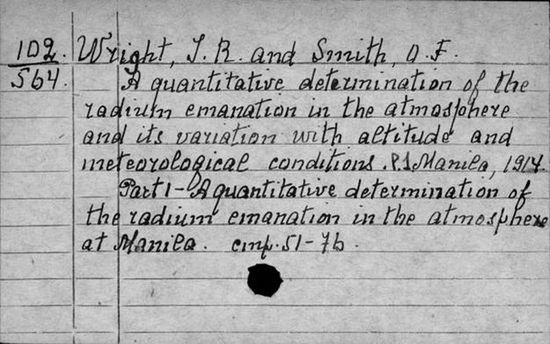 102. Wright, J. R. and Smith, O. F.
564. A quantitative determination of the
radium emanation in the atmosphere
and its variation with altitude and
meteorological conditions. P.1 Manila, 1914.
Part 1 - A quantitative determination of
the radium emanation in the atmosphere
at Manila. стр. 51-76.